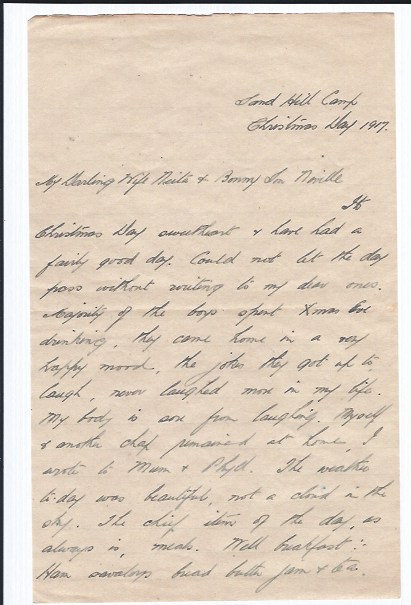 Sand Hill Camp
Christmas Day 1917.
My Darling Wife Neita & Bonny Son Neville
Its
Christmas Day sweetheart & have had a
fairly good day. Could not let the day
pass without writing to my dear ones.
Majority of the boys spent Xmas Eve
drinking, they came home in a very
happy mood, the jokes they got up to,
laugh, never laughed more in my life.
My body is sore from laughing. Myself
& another chap remained at home, I
wrote to Mum & Phyl. The weather
to-day was beautiful, not a cloud in the
sky. The chief item of the day, as
always is, meals. Well breakfast :-
Ham saveloys bread butter jam & tea.